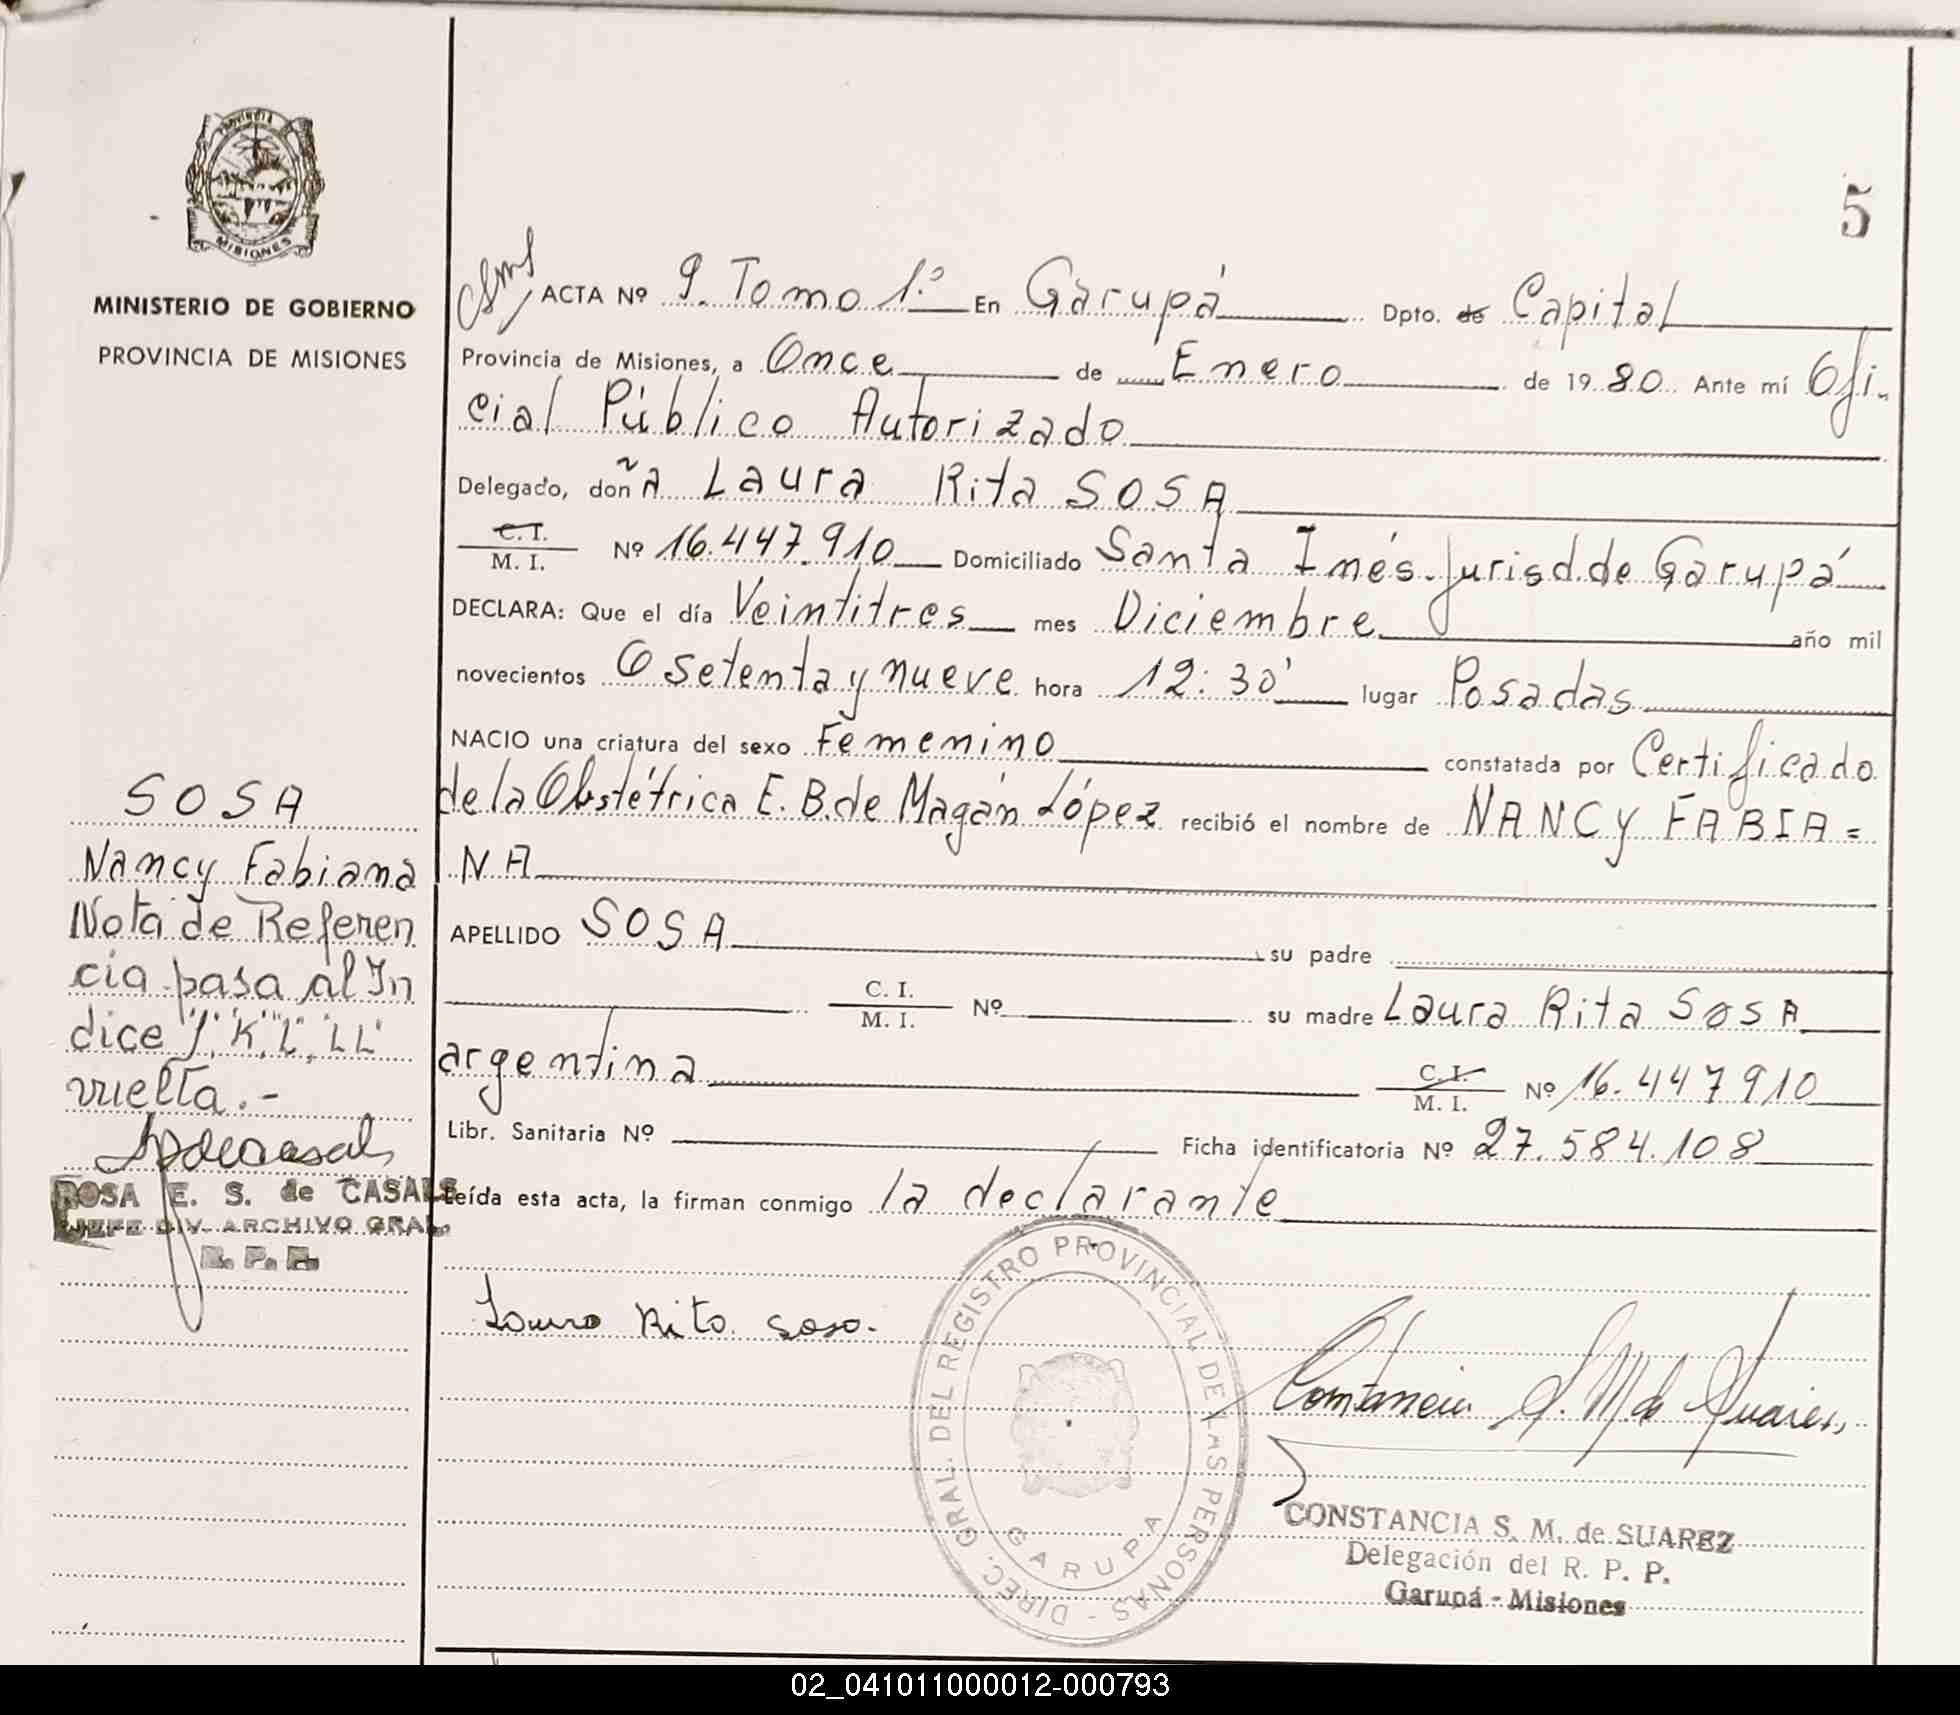 PROVINCIA
MISIONES
MINISTERIO DE GOBIERNO
PROVINCIA DE MISIONES
5
ACTA Nº 9. Tomo 1.º En Garupá Dpto. de Capital
Provincia de Misiones, a Once de Enero de 1980 Ante mí Ofi-
cial Público Autorizado
Delegado, doña Laura Rita SOSA
C. I.
M. I. Nº 16.447.910 Domiciliado Santa Inés. Jurisd. de Garupá
DECLARA: Que el día Veintitres mes Diciembre año mil
novecientos setenta y nueve hora 12:30' lugar Posadas
NACIO una criatura del sexo Femenino constatada por Certificado
de la Obstétrica E. B. de Magán López recibió el nombre de NANCY FABIA=
NA
APELLIDO SOSA su padre
C. I.
M. I. Nº su madre Laura Rita SOSA
argentina C. I.
M. I. Nº 16.447910
Libr. Sanitaria Nº Ficha identificatoria Nº 27.584.108
Leída esta acta, la firman conmigo la declarante
Laura Rita Sosa.
SOSA
Nancy Fabiana
Nota de Referen
cia pasa al In
dice "J", "K", "L", "LL"
vuelta.-
ROSA E. S. de CASALS
JEFE DIV. ARCHIVO GRAL.
R. P. P.
DIREC. GRAL. DEL REGISTRO PROVINCIAL DE LAS PERSONAS -
GARUPA
Constancia S. M. de Suarez
CONSTANCIA S. M. de SUAREZ
Delegación del R. P. P.
Garupá - Misiones
02_041011000012-000793